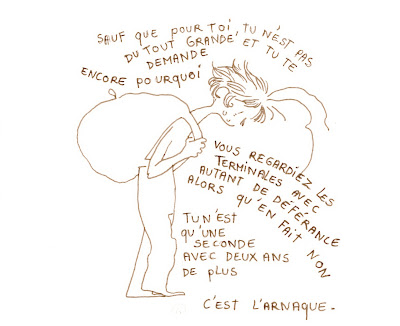 SAUF QUE POUR TOI, TU N'EST PAS
DU TOUT GRANDE, ET TU TE
DEMANDE
ENCORE POURQUOI
VOUS REGARDIEZ LES
TERMINALES AVEC
AUTANT DE DÉFÉRANCE
ALORS QU'EN FAIT NON
TU N'EST
QU'UNE
SECONDE
AVEC DEUX ANS
DE PLUS
C'EST L'ARNAQUE.